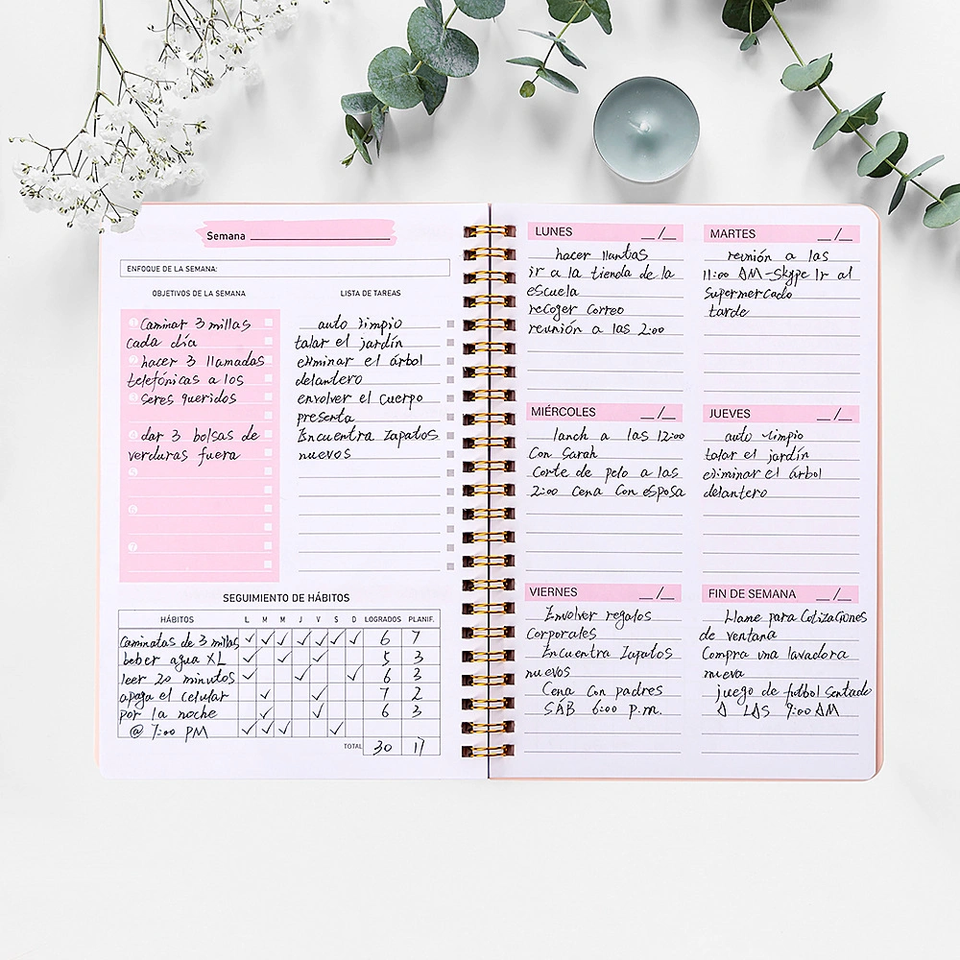 Semana
ENFOQUE DE LA SEMANA:
OBJETIVOS DE LA SEMANA
1 Caminar 3 millas
cada día
2 hacer 3 llamadas
telefónicas a los
3 seres queridos
4 dar 3 bolsas de
verduras fuera
5
6
7
LISTA DE TAREAS
auto limpio
talar el jardín
eliminar el árbol
delantero
envolver el cuerpo
presenta
Encuentra zapatos
nuevos
SEGUIMIENTO DE HÁBITOS
HÁBITOS L M M J V S D LOGRADOS PLANIF.
Caminatas de 3 millas ✓ ✓ ✓ ✓ ✓ ✓ ✓ 6 7
beber agua XL ✓ ✓ ✓ 5 3
leer 20 minutos ✓ ✓ ✓ 6 3
apaga el celular ✓ ✓ 7 2
por la noche ✓ ✓ 6 3
@ 7:00 PM ✓ ✓ ✓ ✓
TOTAL 30 17
LUNES __/__
hacer llantas
ir a la tienda de la
escuela
recoger correo
reunión a las 2:00
MARTES __/__
reunión a las
11:00 AM-Skype Ir al
supermercado
tarde
MIÉRCOLES __/__
lanch a las 12:00
Con Sarah
Corte de pelo a las
2:00 Cena Con esposa
JUEVES __/__
auto limpio
talar el jardín
eliminar el árbol
delantero
VIERNES __/__
Envolver regalos
Corporales
Encuentra Zapatos
nuevos
Cena Con padres
SÁB 6:00 p.m.
FIN DE SEMANA __/__
Llame para Cotizaciones
de ventana
Compra una lavadora
nueva
juego de futbol Sentado
A LAS 9:00 AM